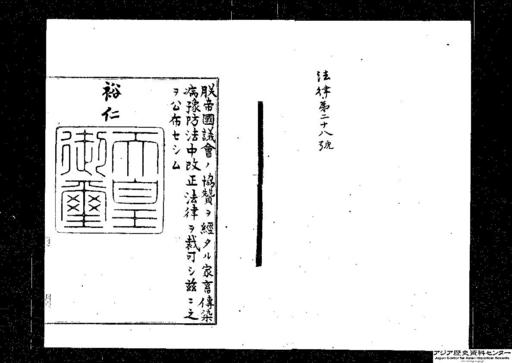 法律第二十八號
朕帝國議會ノ協贊ヲ經タル家畜傳染
病豫防法中改正法律ヲ裁可シ茲ニ之
ヲ公布セシム
裕仁
天皇
御璽
アジア歴史資料センター
Japan Center for Asian Historical Records